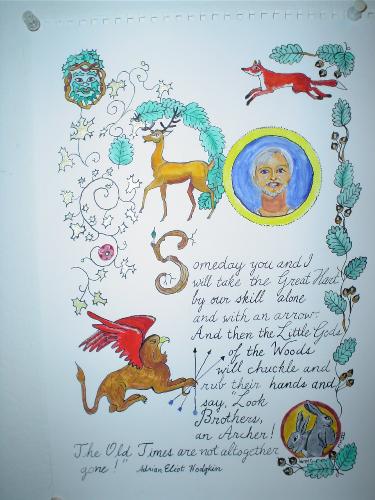 Someday you and I
will take the Great Hart
by our skill alone
and with an arrow.
And then the Little Gods
of the Woods
will chuckle and
rub their hands and
say, "Look
Brothers,
an Archer!
The Old Times are not altogether
gone!" Adrian Eliot Hodgkin